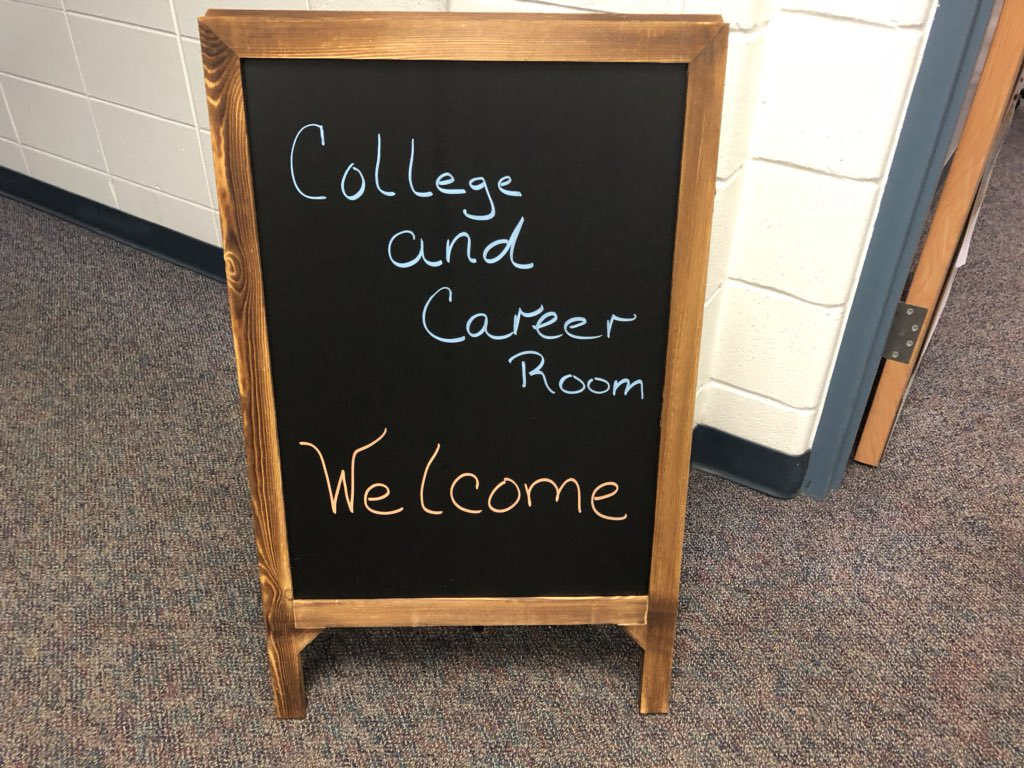 College
and
Career
Room
Welcome